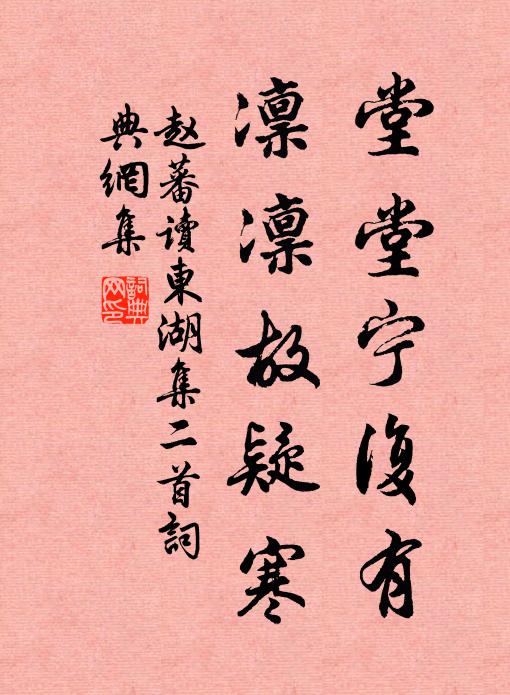 堂堂宁復有
凛凛故疑寒
赵蕃读東湖集二首詞
典網集
詞典
网印